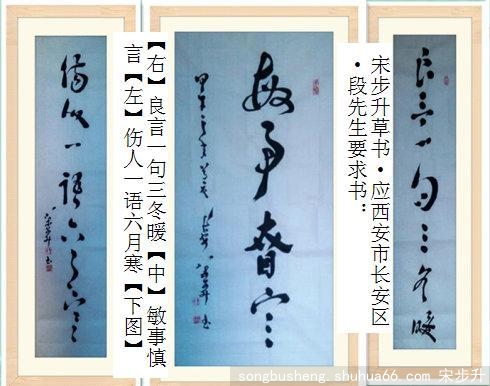 良言一句三冬暖
宋步升草书·应西安市长安区
·段先生要求书:
敏事慎言
【右】良言一句三冬暖【中】敏事慎
言【左】伤人一语六月寒【下图】
伤人一语六月寒
宋步升书
songbusheng.shuhua66.com 宋步升